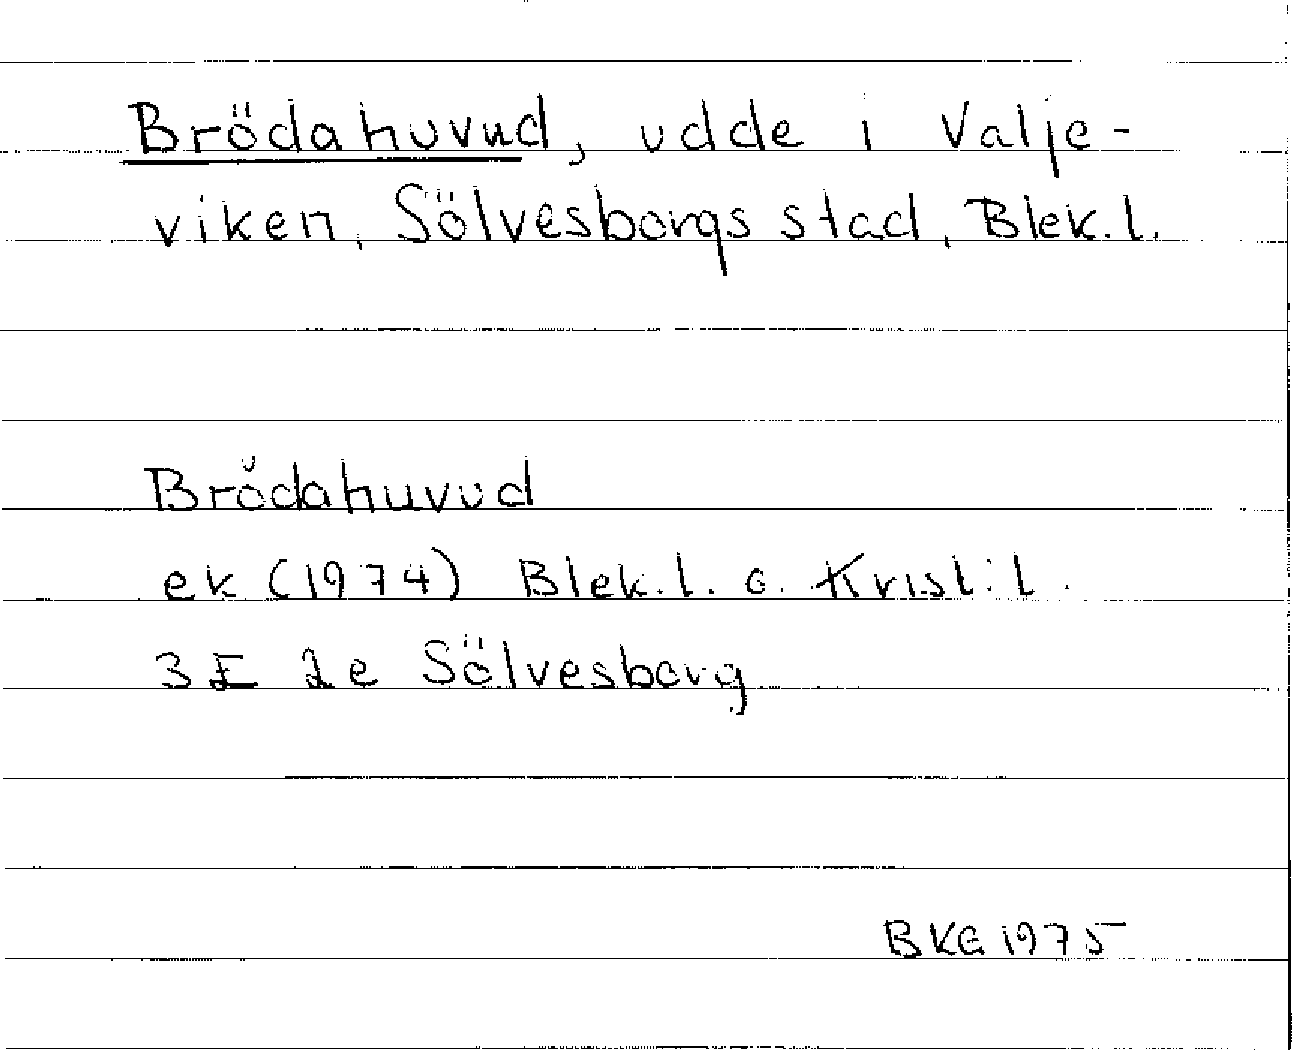 Brödahuvud, udde i Valje-
viken, Sölvesborgs stad, Blek.l.
Brödahuvud
ek (1974) Blek.l. o. Krist:l.
3E 2e Sölvesborg
BKG 1975